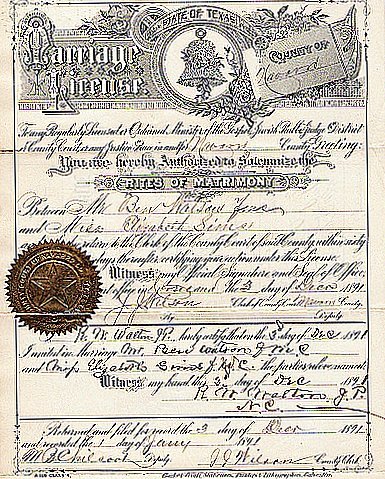 THE STATE OF TEXAS
Marriage
License
COUNTY OF
To any Regularly Licensed or Ordained Minister of the Gospel, Jewish Rabbi, Judge District
or County Court or any Justice Peace in and for County, Greeting:
You are hereby Authorized to Solemnize the
RITES OF MATRIMONY
Between Mr Ben Watson
and Miss Elizabeth Sims
and return to the Clerk of the County Court of said County within sixty
days thereafter certifying your action under this License.
Witness my Official Signature and Seal of Office
at office in the 3 day of Decr 1891
J. J. Wilson Clerk of County Court County.
By Deputy
I, R. W. Walton J.P. hereby certify that on the 3 day of Dec 1891
I united in Marriage Mr. Ben Watson
and Miss Elizabeth Sims the parties above named.
Witness my hand this 3 day of Dec 1891
R. W. Walton J.P.
N.C.
Returned and filed for record the 3 day of Decr 1891
and recorded the 1 day of Jany 1891
Deputy. J J Wilson County Clerk.